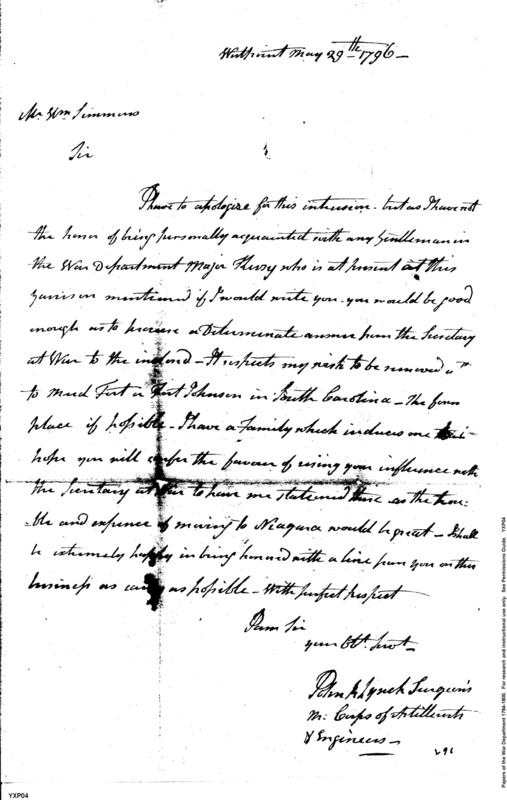 Westpoint May 29th 1796 –
Mr. Wm Simmons
Sir
I have to apologize for this intrusion - but as I have not
the honor of being personally acquainted with any Gentleman in
the War Department Major Rivery who is at present at this
Garrison mentioned if I would write you - you would be good
enough as to procure a Determinate answer from the Secretary
at War to the inclosed – It respects my wish to be removed
to Mud Fort or Fort Johnson in South Carolina – the former
place if possible – I have a Family which induces me
hope you will confer the favour of using your influence with
the Secretary at War to have me stationed there as the trou-
ble and expence of moving to Niagara would be great – I shall
be extremely happy in being honored with a line from you on this
business as early as possible – With perfect respect
I am Sir
your Obt. Servt –
John R Lynch Surgeon's
M: Corps of Artillerists
& Engineers –
291
YXP04
Papers of the War Department 1784-1800. For research and instructional use only. See Permissions Guide. YXP04